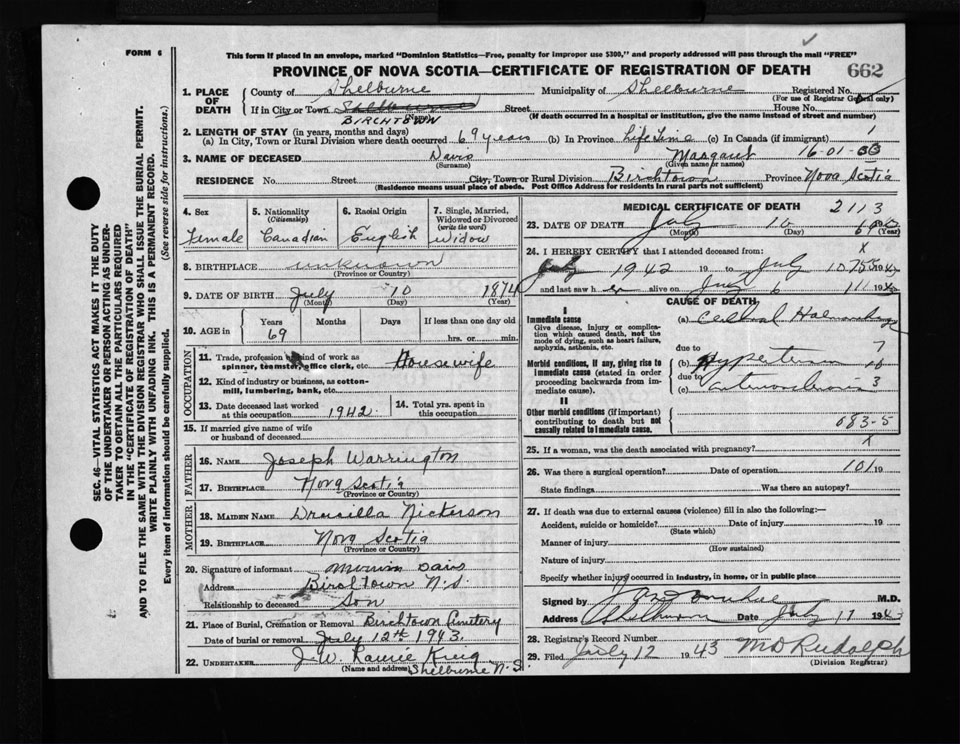 FORM 6
This form if placed in an envelope, marked "Dominion Statistics—Free, penalty for improper use $300," and properly addressed will pass through the mail "FREE"
PROVINCE OF NOVA SCOTIA—CERTIFICATE OF REGISTRATION OF DEATH 662
1. PLACE OF DEATH
County of Shelburne Municipality of Shelburne Registered No.
(For use of Registrar General only)
If in City or Town Shelburne Street House No.
BIRCHTOWN (If death occurred in a hospital or institution, give the name instead of street and number)
2. LENGTH OF STAY (in years, months and days)
(a) In City, Town or Rural Division where death occurred 69 years (b) In Province Life Time (c) In Canada (if immigrant) 1
3. NAME OF DECEASED Davis Margaret 16-01-
(Surname) (Given name or names)
RESIDENCE No. Street City, Town or Rural Division Birchtown Province Nova Scotia
(Residence means usual place of abode. Post Office Address for residents in rural parts not sufficient)
4. Sex
Female
5. Nationality (Citizenship)
Canadian
6. Racial Origin
English
7. Single, Married, Widowed or Divorced (write the word)
Widow
8. BIRTHPLACE unknown
(Province or Country)
9. DATE OF BIRTH July 10 1874
(Month) (Day) (Year)
10. AGE in Years Months Days If less than one day old
69 hrs. or min.
OCCUPATION
11. Trade, profession or kind of work as spinner, teamster, office clerk, etc. Housewife
12. Kind of industry or business, as cotton-mill, lumbering, bank, etc.
13. Date deceased last worked at this occupation 1942
14. Total yrs. spent in this occupation
15. If married give name of wife or husband of deceased
FATHER
16. NAME Joseph Warrington
17. BIRTHPLACE Nova Scotia
(Province or Country)
MOTHER
18. MAIDEN NAME Drusilla Nickerson
19. BIRTHPLACE Nova Scotia
(Province or Country)
20. Signature of informant Davis
Address Birchtown N.S.
Relationship to deceased Son
21. Place of Burial, Cremation or Removal Birchtown Cemetery
Date of burial or removal July 12th 1943.
22. UNDERTAKER J.W.
(Name and address) Shelburne N.S
MEDICAL CERTIFICATE OF DEATH 2113
23. DATE OF DEATH July 10
(Month) (Day) (Year)
24. I HEREBY CERTIFY that I attended deceased from: X
July 1942 19 to July 10
and last saw h er alive on July 6
CAUSE OF DEATH
I
Immediate cause
Give disease, injury or complication which caused death, not the mode of dying, such as heart failure, asphyxia, asthenia, etc.
(a) Cerebral Haemorrhage
due to 7
Morbid conditions, if any, giving rise to immediate cause (stated in order proceeding backwards from immediate cause).
(b) Hypertension 10
due to
(c) 3
II
Other morbid conditions (if important) contributing to death but not causally related to immediate cause.
683-5
25. If a woman, was the death associated with pregnancy? X
26. Was there a surgical operation? Date of operation 101 19
State findings Was there an autopsy?
27. If death was due to external causes (violence) fill in also the following:—
Accident, suicide or homicide? Date of injury 19
(State which)
Manner of injury
(How sustained)
Nature of injury
Specify whether injury occurred in industry, in home, or in public place
Signed by M.D.
Address Shelburne Date July 17 1943
28. Registrar's Record Number
29. Filed July 12 1943 M D Rudolph
(Division Registrar)
SEC. 46—VITAL STATISTICS ACT MAKES IT THE DUTY
OF THE UNDERTAKER OR PERSON ACTING AS UNDER-
TAKER TO OBTAIN ALL THE PARTICULARS REQUIRED
IN THE "CERTIFICATE OF REGISTRATION OF DEATH"
AND TO FILE THE SAME WITH THE DIVISION REGISTRAR WHO SHALL ISSUE THE BURIAL PERMIT.
WRITE PLAINLY WITH UNFADING INK. THIS IS A PERMANENT RECORD.
Every item of information should be carefully supplied. (See reverse side for instructions.)